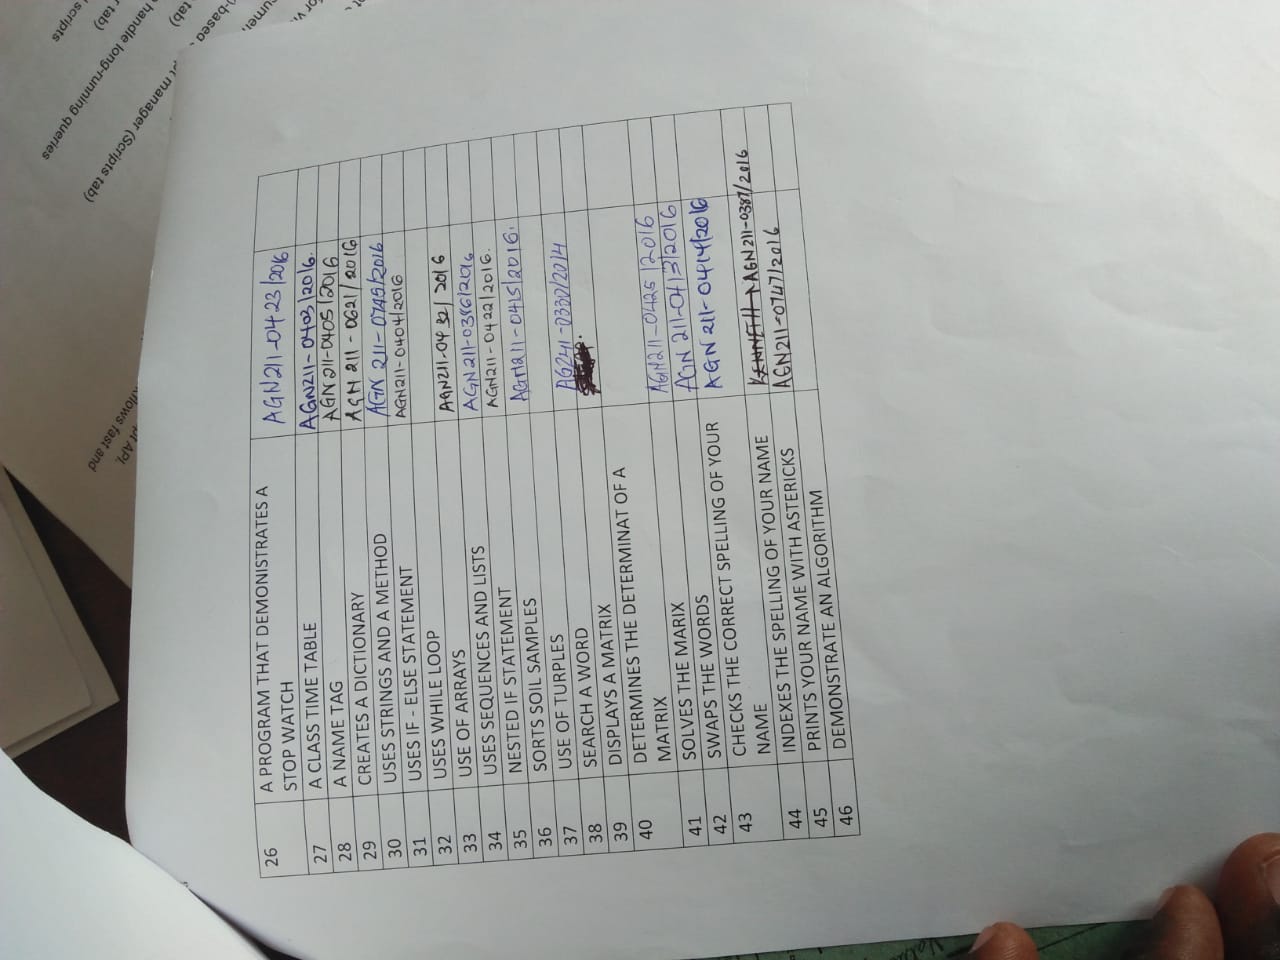 26 A PROGRAM THAT DEMONISTRATES A AGN211-0423/2016
STOP WATCH
27 A CLASS TIME TABLE AGN211-0403/2016.
28 A NAME TAG AGN211-0405/2016
29 CREATES A DICTIONARY AGN 211-0621/2016
30 USES STRINGS AND A METHOD AGN 211-0745/2016
31 USES IF - ELSE STATEMENT AGN211-0404/2016
32 USES WHILE LOOP
33 USE OF ARRAYS AGN211-0432/2016
34 USES SEQUENCES AND LISTS AGN211-0386/2016
35 NESTED IF STATEMENT AGN211-0422/2016.
36 SORTS SOIL SAMPLES AGN211-0415/2016.
37 USE OF TURPLES
38 SEARCH A WORD AG241-0330/2014
39 DISPLAYS A MATRIX
40 DETERMINES THE DETERMINAT OF A
MATRIX AGN211-0425/2016
41 SOLVES THE MARIX AGN 211-0413/2016
42 SWAPS THE WORDS AGN 211-0414/2016
43 CHECKS THE CORRECT SPELLING OF YOUR
NAME KENNETH AGN211-0387/2016
44 INDEXES THE SPELLING OF YOUR NAME AGN211-0747/2016
45 PRINTS YOUR NAME WITH ASTERICKS
46 DEMONSTRATE AN ALGORITHM
handle long-running queries
manager (Scripts tab)
scripts
tab)
-based
pt API,
llows fast and